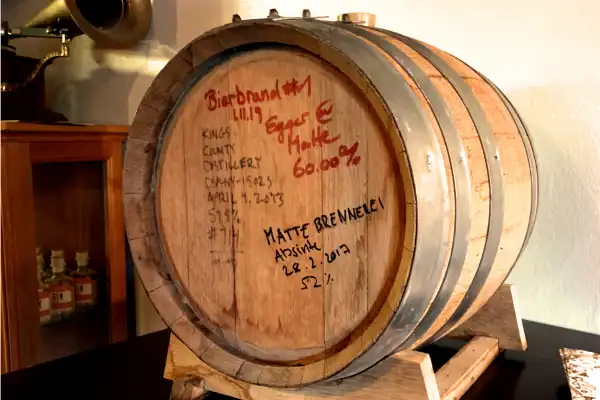 Bierbrand #1
1.11.19
Egger &
Matte
60.00%
KINGS
COUNTY
DISTILLERY
APRIL 4, 2013
MATTE BRENNEREI
Absinte
28.2.2017
52%